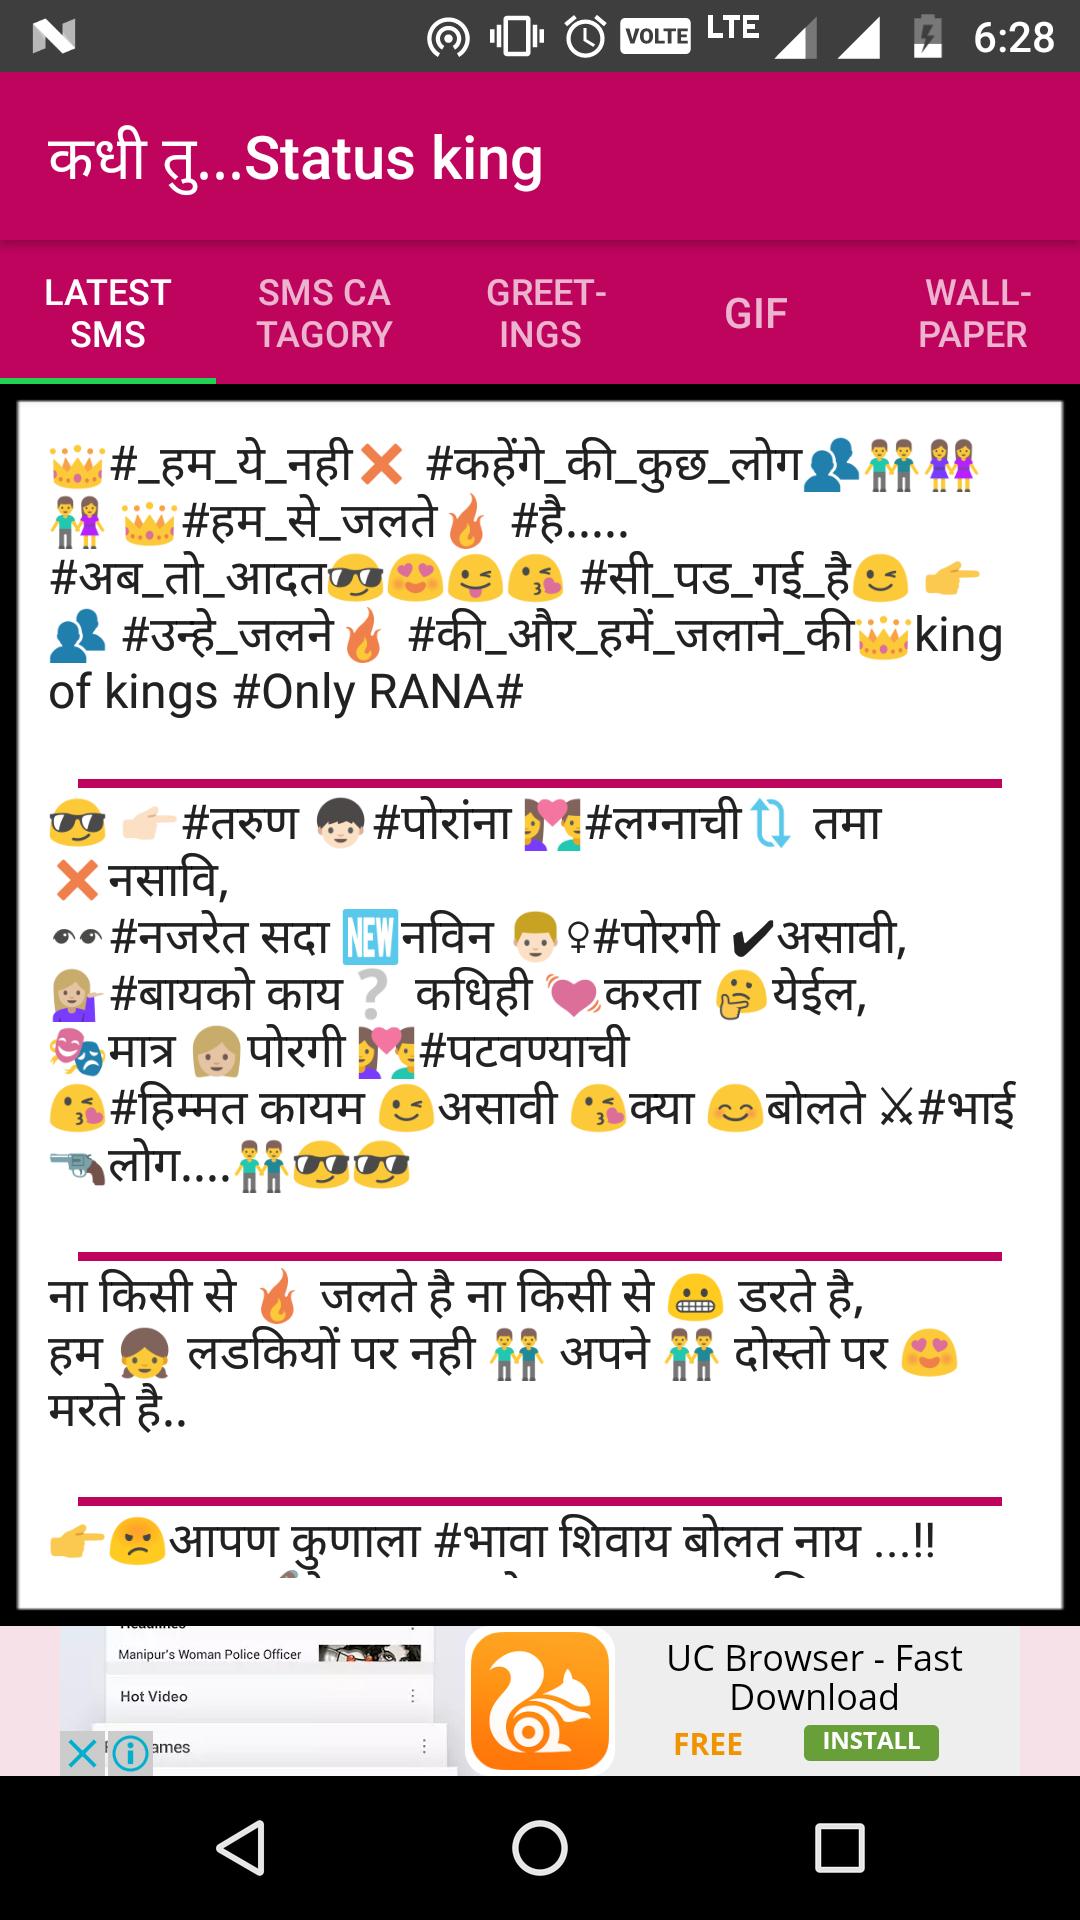 VOLTE LTE 6:28
कधी तु...Status king
LATEST SMS
SMS CA TAGORY
GREET-INGS
GIF
WALL-PAPER
👑#_हम_ये_नही❌ #कहेंगे_की_कुछ_लोग👥👬👭
👫 👑#हम_से_जलते🔥 #है.....
#अब_तो_आदत😎😍😜😘 #सी_पड_गई_है😉 👉
👥 #उन्हे_जलने🔥 #की_और_हमें_जलाने_की👑king
of kings #Only RANA#
😎 👉🏻#तरुण 👦🏻#पोरांना 💏#लग्नाची🔃 तमा
❌नसावि,
👀#नजरेत सदा 🆕नविन 👨🏼♀#पोरगी ✔असावी,
💁🏼#बायको काय❔ कधिही 💓करता 🤔येईल,
🎭मात्र 👩🏼पोरगी 💏#पटवण्याची
😘#हिम्मत कायम 😉असावी 😘क्या 😊बोलते ⚔#भाई
🔫लोग....👬😎😎
ना किसी से 🔥 जलते है ना किसी से 😬 डरते है,
हम 👧 लडकियों पर नही 👬 अपने 👬 दोस्तो पर 😍
मरते है..
👉😠आपण कुणाला #भावा शिवाय बोलत नाय ...!!
Manipur's Woman Police Officer
Hot Video
ames
UC Browser - Fast
Download
FREE INSTALL